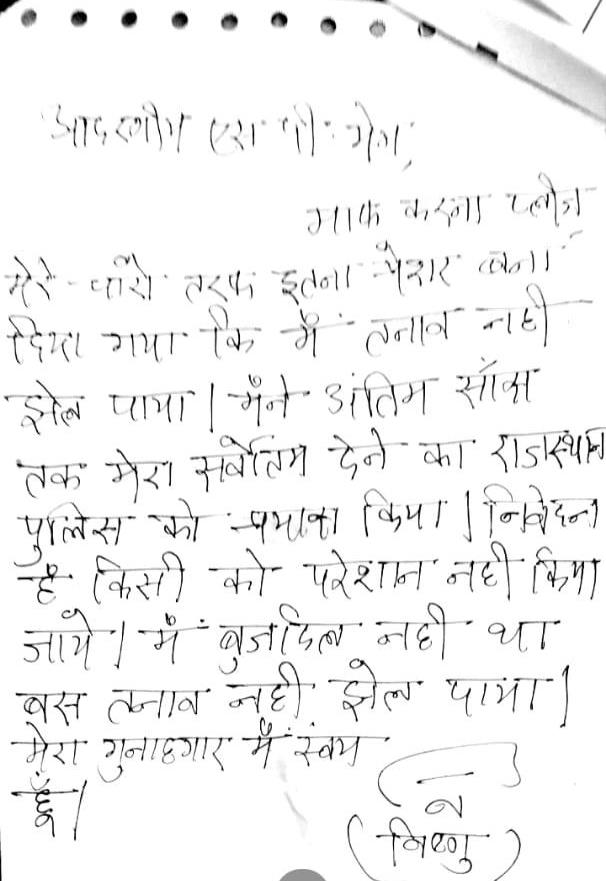 आदरणीय एस पी. मेम,
माफ करना प्लीज
मेरे चारो तरफ इतना प्रैशर बना
दिया गया कि मैं तनाव नही
झेल पाया | मैंने अंतिम साँस
तक मेरा सर्वोतम देने का राजस्थान
पुलिस को प्रयास किया | निवेदन
है किसी को परेशान नही किया
जाये | मैं बुजदिल नही था
बस तनाव नही झेल पाया |
मेरा गुनाहगार मैं स्वंय
हूँ |
(विष्णु)